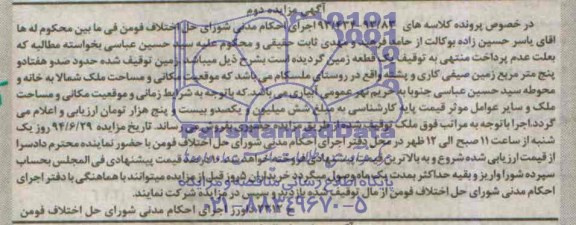 آگهی مزایده دوم
در خصوص پرونده کلاسه های ۹۳/۸۳ اجرای احکام مدنی شورای حل اختلاف فومن فی ما بین محکوم له ها
اقای یاسر حسین زاده بوکالت از حامد فرهمند و مهدی ثابت حقیقی و محکوم علیه سید حسین عباسی بخواسته مطالبه که
بعلت عدم پرداخت منتهی به توقیف یک قطعه زمین گردیده است بشرح ذیل میباشد زمین توقیف شده حدود صدو هفتادو
پنج متر مربع زمین صیفی کاری و پشتی واقع در روستای ملسکام می باشد که موقعیت مکانی و مساحت ملک شمالا به خانه و
محوطه سید حسین عباسی جنوبا به حریم نهر عمومی آبیاری می باشد که باتوجه به شرایط زمانی و موقعیت مکانی و مساحت
ملک و سایر عوامل موثر قیمت پایه کارشناسی به مبلغ شش میلیون و یکصدو بیست و پنج هزار تومان ارزیابی و اعلام می
گردد اجرا باتوجه به مراتب فوق ملک توقیف شده از طریق مزایده حضوری بفروش می رساند. تاریخ مزایده ۹۴/۶/۲۹ روز یک
شنبه از ساعت ۱۱ صبح الی ۱۲ ظهر در محل دفتر اجرای احکام مدنی شورای حل اختلاف فومن با حضور نماینده محترم دادسرا
از قیمت ارزیابی شده شروع و به بالاترین قیمت پیشنهادی فروخته خواهد شد ۱۰٪ قیمت پیشنهادی فی المجلس بحساب
سپرده شورا واریز و بقیه حداکثر بمدت یک ماه وصول میگردد خریداران ۵ روز قبل از مزایده میتوانند با هماهنگی با دفتر اجرای
احکام مدنی شورای حل اختلاف فومن از مال توقیف شده بازدید و سپس در مزایده شرکت نمایند.
دادورز اجرای احکام مدنی شورای حل اختلاف فومن
ParsNamadData
پایگاه اطلاع رسانی مناقصه و مزایده
۰۲۱-۸۸۳۴۹۶۷۰-۵